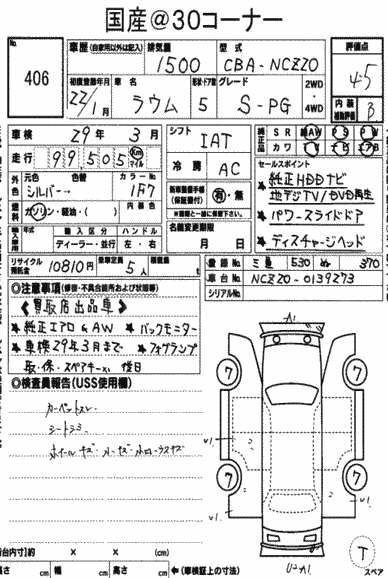 国産@30コーナー
No. 406
車歴(自家用以外は記入) 排気量 1500 型式 CBA-NCZ20 評価点 4.5
初度登録年月 22/1月 車名 ラウム 形状・ドア数 5 グレード S-PG 2WD・4WD 内装補助評価 B
車検 29年3月 シフト IAT 純正品 SR 純AW PS PW
走行 99505 Km マイル 冷房 AC カワ TV ナビ エアB
外色 元色 シルバー→ 色替 カラーNo 1F7 新車整備手帳(保証書付) 有・無 ※書類と一緒に保管下さい
セールスポイント
★純正HDDナビ
地デジTV/DVD再生
★パワースライドドア
★ディスチャージヘッド
燃料 ガソリン・軽油・( ) 内装色
輸入車 年式 輸入区分 ディーラー・並行 ハンドル 左・右 名義変更期限 月 日
リサイクル預託金 10810円 乗車定員 5人 積載量 t
登録No. 三重 530 め 370
車台No. NCZ20-0139273
シリアルNo.
◎注意事項(修復・不具合箇所および状態等)
《買取店出品車》
★純正エアロ&AW ★バックモニター
★車検29年3月まで ★フォグランプ
取・保・スペアキーx1 後日
◎検査員報告(USS使用欄)
カーペットスレ
シートシミ
ホイールキズ
7 7
7 7
A1
U1
U1
U1
U1
U2 A1
T
スペア
(荷台内寸)約 × × (cm)
長さ cm 幅 cm 高さ cm ←(車検証上の寸法)